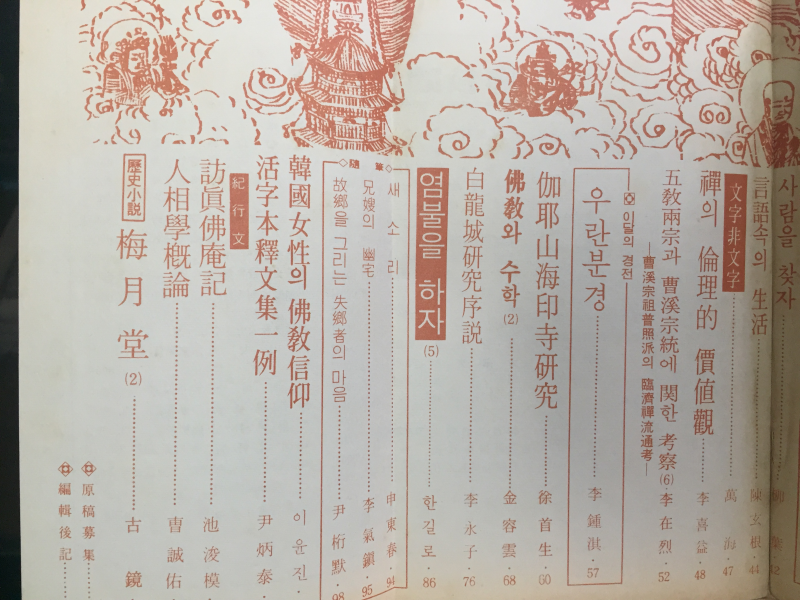 사람을 찾자
言語속의 生活 陳玄根·44
文字非文字 萬海·47
禪의 倫理的 價値觀 李喜益·48
五敎兩宗과 曹溪宗統에 關한 考察(6) 李在烈·52
—曹溪宗祖普照派의 臨濟禪流通考—
이달의 경전
우란분경 李鍾淇·57
伽耶山海印寺研究 徐首生·60
佛敎와 수학(2) 金容雲·68
白龍城研究序説 李永子·76
염불을 하자(5) 한길로·86
隨筆
새소리 申東春·94
兄嫂의 幽宅 李氣鎭·95
故鄕을 그리는 失鄕者의 마음 尹桁默·98
韓國女性의 佛敎信仰 이윤진·
活字本釋文集一例 尹炳泰·
紀行文
訪眞佛庵記 池浚模·
人相學槪論 曺誠佑·
歷史小説 梅月堂(2) 古鏡·
原稿募集
編輯後記